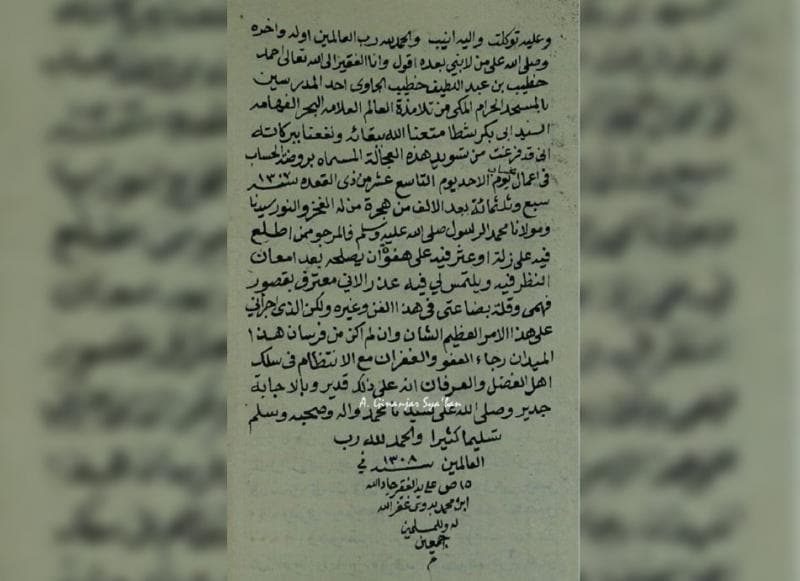 وعليه توكلت واليه انيب والحمد لله رب العالمين اوله واخره
وصلى الله على من لا نبي بعده اقول وانا الفقير الى الله تعالى احمد
خطيب بن عبد اللطيف خطيب الجاوى احد المدرسين
بالمسجد الحرام المكى من تلامذة العالم العلامه البحر الفهامه
السيد ابى بكر شطا متعنا الله ببقائه ونفعنا ببركاته
انى قد فرغت من تسويد هذه العجالة المسماه بروضة الحساب
فى اعمال يوم الاحد يوم التاسع عشر من ذى القعده سنة ١٣٠٧
سبع وثلثمائة بعد الالف من هجرة من له الفخر والنور سيدنا
ومولانا محمد الرسول صلى الله عليه وسلم فالمرجو ممن اطلع
فيه على زلة او عثر فيه على هفوة ان يصلحه بعد امعان
النظر فيه ويلتمس لي فيه عذرا لاني معترف بقصور
فهمى وقلة بضاعتى فى هذا الفن وغيره ولكن الذى جرأني
على هذا الامر العظيم الشان وان لم اكن من فرسان هذا
الميدان رجاء العفو والغفران مع الانتظام فى سلك
اهل الفضل والعرفان انه على ذلك قدير وبالاجابة
جدير وصلى الله على سيدنا محمد واله وصحبه وسلم
A. Ginanjar Sya'ban
تسليما كثيرا والحمد لله رب
العالمين سنة ١٣٠٨ في
١٥ ص على يد الفقير جاد الله
ابن محمد بدوى غفر الله
له وللمسلمين
اجمعين
م